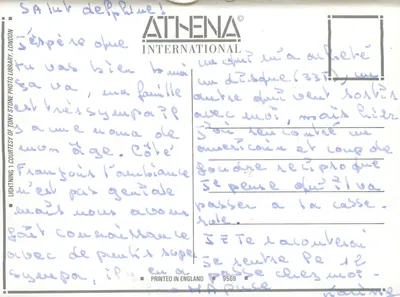 SAlut delphine!
J'espère que
tu vas bien, moi
ça va, ma famille
est très sympa, il
y a une nana de
mon âge. Côté
Français l'ambiance
n'est pas géniale
mais nous avons
fait connaissance
avec de petits supe
sympa, il y en a
ATHENA
INTERNATIONAL
un qui m'a acheté
un disque (33T), un
autre qui veut sortir
avec moi, mais hier
j'ai rencontré un
américain et coup de
foudre réciproque
Je pense qu'il va
passer a la casse-
role.
JE Te raconterai
Je rentre le 12
passe chez moi
Karine
LIGHTNING 1 COURTESY OF TONY STONE PHOTO LIBRARY, LONDON
PRINTED IN ENGLAND 9566